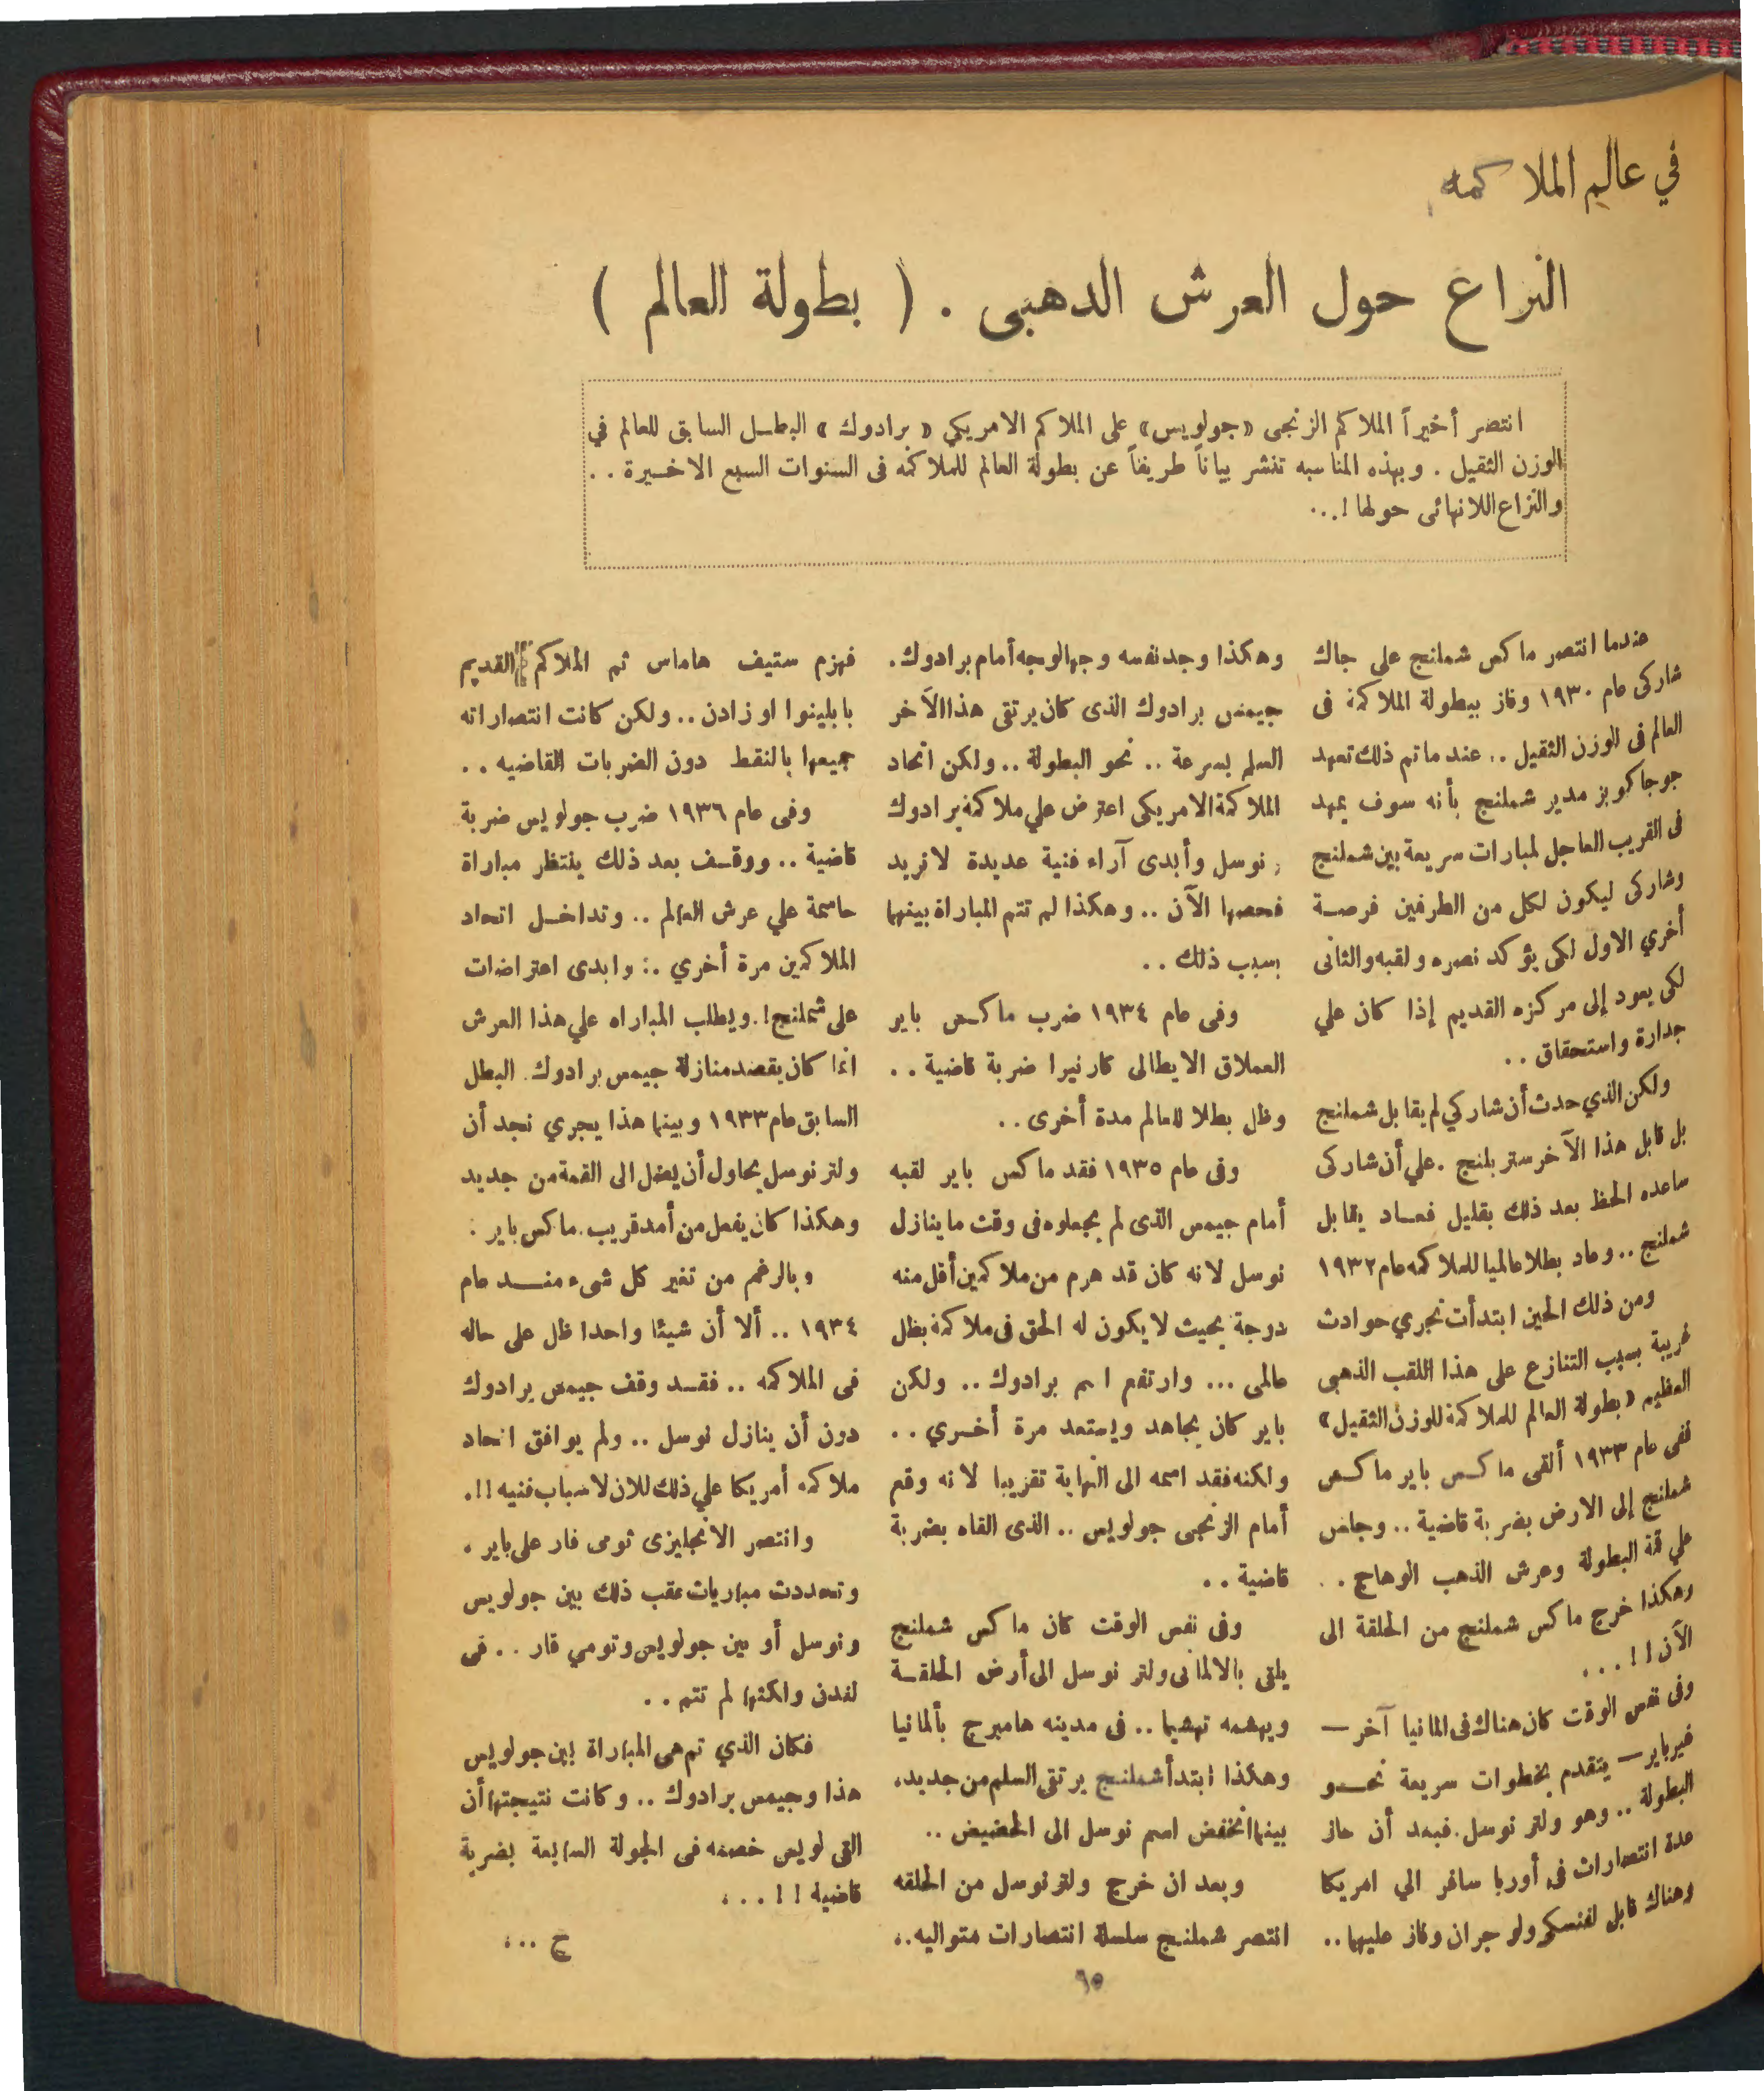 في عالم الملاكمه
النزاع حول العرش الدهبى . ( بطولة العالم )
انتصر أخيراً الملاكم الزنجى «جولويس» على الملاكم الامريكي « برادوك » البطل السابق للعالم في
الوزن الثقيل . وبهذه المناسبه تنشر بياناً طريفاً عن بطولة العالم للملاكمه فى السنوات السبع الاخيرة . .
والنزاع اللانهائى حولها ! . . .
عندما انتصر ماكس شملنج على جاك
شاركى عام ١٩٣٠ وفاز ببطولة الملاكمة فى
العالم فى الوزن الثقيل . . عند ماتم ذلك تعهد
جوجاكوبز مدير شملنج بأنه سوف يمهد
فى القريب العاجل لمبارات سريعة بين شملنج
وشاركى ليكون لكل من الطرفين فرصة
أخري الاول لكى يؤكد نصره ولقبه والثانى
لكى يعود إلى مركزه القديم إذا كان علي
جدارة واستحقاق . .
ولكن الذي حدث أن شاركي لم يقابل شملنج
بل قابل هذا الآخر ستربلنج . علي أن شاركى
ساعده الحظ بعد ذلك بقليل فعاد يقابل
شملنج . . وعاد بطلا عالميا للملاكمه عام ١٩٣٢
ومن ذلك الحين ابتدأت تجري حوادث
غريبة بسبب التنازع على هذا اللقب الذهبى
العظيم «بطولة العالم للملاكمة للوزن الثقيل»
ففى عام ١٩٣٣ ألقى ماكس باير ماكس
شملنج إلى الارض بضربة قاضية . . وجلس
علي قمة البطولة وعرش الذهب الوهاج . .
وهكذا خرج ماكس شملنج من الحلقة الى
الآن ! ! . . .
وفى نفس الوقت كان هناك فى المانيا آخر —
غير باير — يتقدم بخطوات سريعة نحو
البطولة . . وهو ولتر نوسل . فبعد أن حاز
عدة انتصارات فى أوربا سافر الي امريكا
وهناك قابل لفنسكى ولو جران وفاز عليهما . .
وهكذا وجد نفسه وجها لوجه أمام برادوك .
جيمس برادوك الذى كان يرتقى هذا الآخر
السلم بسرعة . . نحو البطولة . . ولكن اتحاد
الملاكمة الامريكى اعترض علي ملاكمة برادوك
ونوسل وأبدى آراء فنية عديدة لا نريد
فحصها الآن . . وهكذا لم تتم المباراة بينهما
بسبب ذلك . .
وفى عام ١٩٣٤ ضرب ماكس باير
العملاق الايطالى كارنيرا ضربة قاضية . .
وظل بطلا للعالم مدة أخرى . .
وفى عام ١٩٣٥ فقد ماكس باير لقبه
أمام جيمس الذى لم يجعلوه فى وقت ما ينازل
نوسل لانه كان قد هرم من ملاكمين أقل منه
درجة بحيث لا يكون له الحق فى ملاكمة بطل
عالمى . . . وارتفع اسم برادوك . . ولكن
باير كان يجاهد ويستعد مرة أخري . .
ولكنه فقد اسمه الى النهاية تقريبا لانه وقع
أمام الزنجى جولويس . . الذى القاه بضربة
قاضية . .
وفى نفس الوقت كان ماكس شملنج
يلقى بالالمانى ولتر نوسل الى أرض الحلقة
ويهشمه تهشيما . . فى مدينه هامبرج بألمانيا
وهكذا ابتدأ شملنج يرتقى السلم من جديد،
بينما انخفض اسم نوسل الى الحضيض . .
وبعد ان خرج ولتر نوسل من الحلقه
انتصر شملنج سلسلة انتصارات متواليه . .
فهزم ستيف هاماس ثم الملاكم القديم
بابلينوا اوزادن . . ولكن كانت انتصاراته
جميعها بالنقط دون الضربات القاضيه . .
وفى عام ١٩٣٦ ضرب جولويس ضربة
قاضية . . ووقف بعد ذلك ينتظر مباراة
حاسمة علي عرش العالم . . وتداخل اتحاد
الملاكمين مرة أخري . : وابدى اعتراضات
على شملنج ! . ويطلب المباراه علي هذا العرش
انما كان يقصد منازلة جيمس برادوك . البطل
السابق عام ١٩٣٣ وبينما هذا يجري نجد أن
ولتر نوسل يحاول أن يصل الى القمة من جديد
وهكذا كان يفعل من أمد قريب . ماكس باير :
وبالرغم من تغير كل شىء منذ عام
١٩٣٤ . . ألا أن شيئا واحدا ظل على حاله
فى الملاكمه . . فقد وقف جيمس برادوك
دون أن ينازل نوسل . . ولم يوافق اتحاد
ملاكمه أمريكا علي ذلك للان لاسباب فنيه ! ! .
وانتصر الانجليزى تومى فار على باير .
وتعددت مباريات عقب ذلك بين جولويس
ونوسل أو بين جولويس وتومي قار . . فى
لندن ولكنها لم تتم . .
فكان الذي تم هى المباراة بين جولويس
هذا وجيمس برادوك . . وكانت نتيجتها أن
القى لويس خصمه فى الجولة السابعة بضربة
قاضية ! ! . . .
ج . . .
٦٥